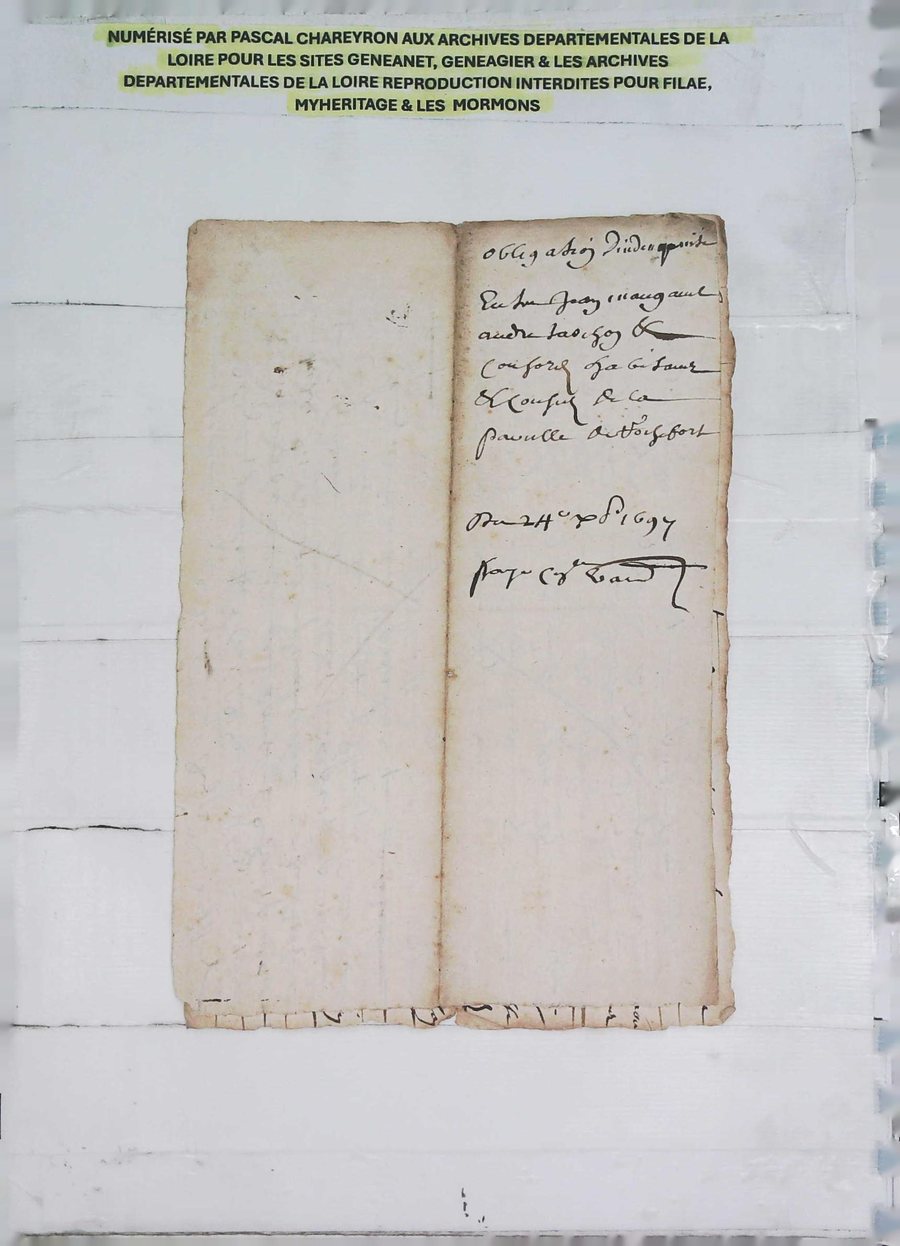 NUMÉRISÉ PAR PASCAL CHAREYRON AUX ARCHIVES DEPARTEMENTALES DE LA
LOIRE POUR LES SITES GENEANET, GENEAGIER & LES ARCHIVES
DEPARTEMENTALES DE LA LOIRE REPRODUCTION INTERDITES POUR FILAE,
MYHERITAGE & LES MORMONS
obligation d'indempnité
Entre Jean
andre tachon &
consorts habitans
& consulz de la
paroisse de Rochefort
Du 24e xbre 1697